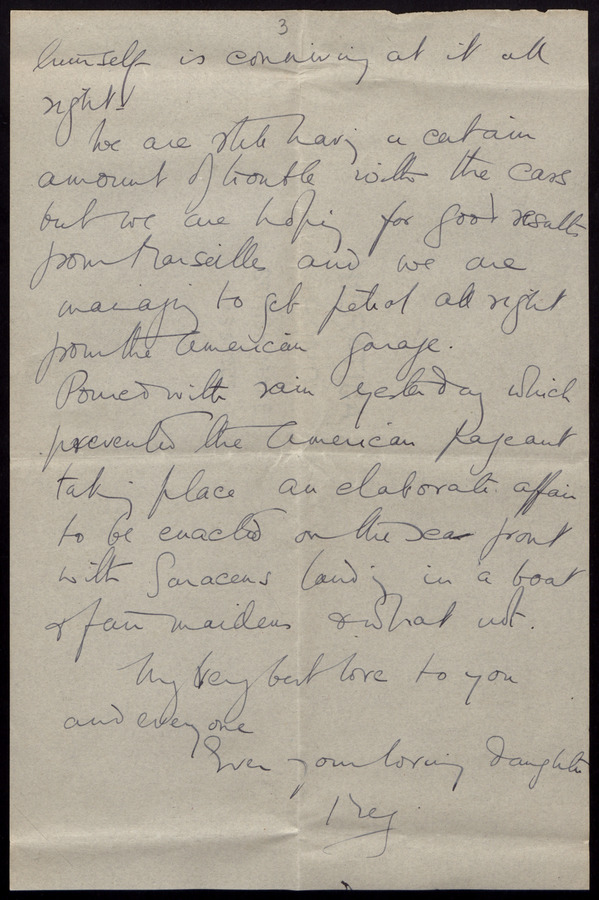 3
himself is conniving at it all
right!
We are still having a certain
amount of trouble with the cars
but we are hoping for good results
from Marseilles and we are
managing to get petrol all right
from the American garage.
Poured with rain yesterday which
prevented the American pageant
taking place an elaborate affair
to be enacted on the sea front
with Saracens landing in a boat
& fair maidens & what not.
My very best love to you
and everyone
Ever your loving daughter